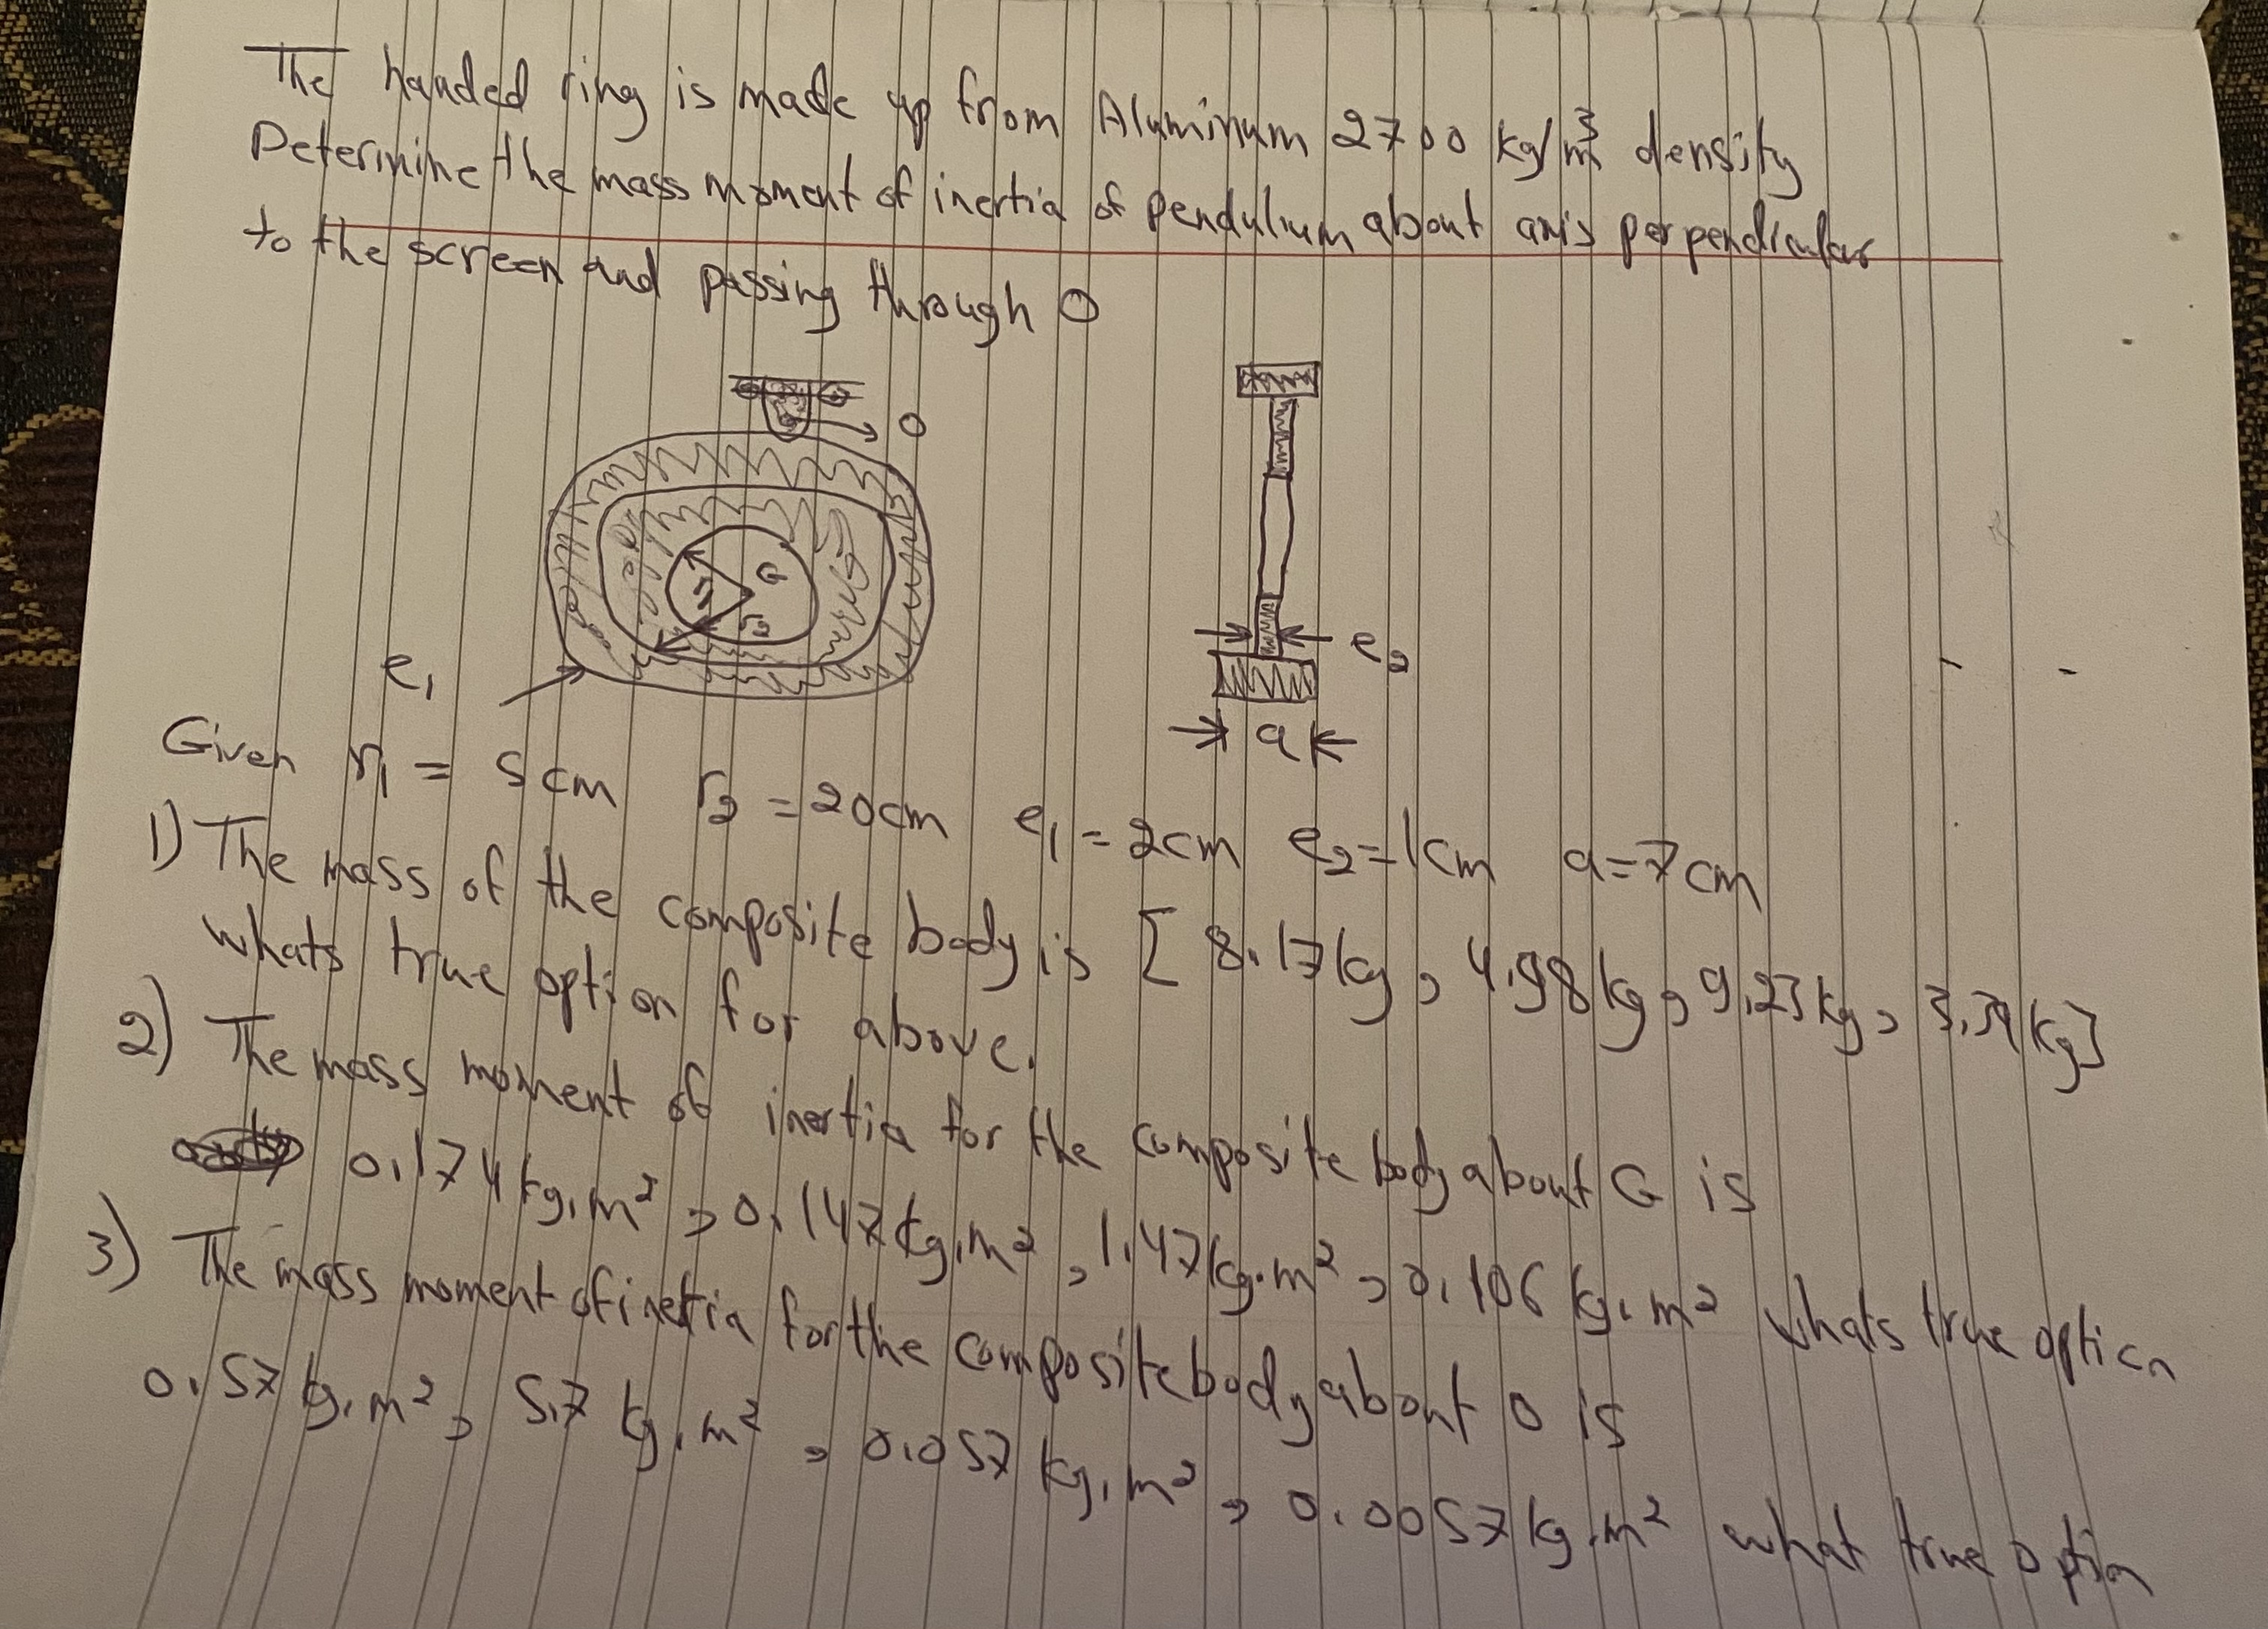 The handed ring is made up from Aluminum 2700 kg/m³ density
Determine the mass moment of inertia of pendulium about axis perpendicular
to the screen and passing through O
O
G
r₁
r₂
e₁
e₂
a
Given r₁ = 5cm r₂ = 20cm e₁ = 2cm e₂ = 1cm a = 7cm
1) The mass of the composite body is [8.17kg, 4.98kg, 9.23kg, 3.39kg]
whats true option for above.
2) The mass moment of inertia for the composite body about G is
0.174 kg.m², 0.147 kg.m², 1.47 kg.m², 0.106 kg.m² whats true option
3) The mass moment of inertia for the composite body about O is
0.57 kg.m², 5.7 kg.m², 0.057 kg.m², 0.0057 kg.m² what true option